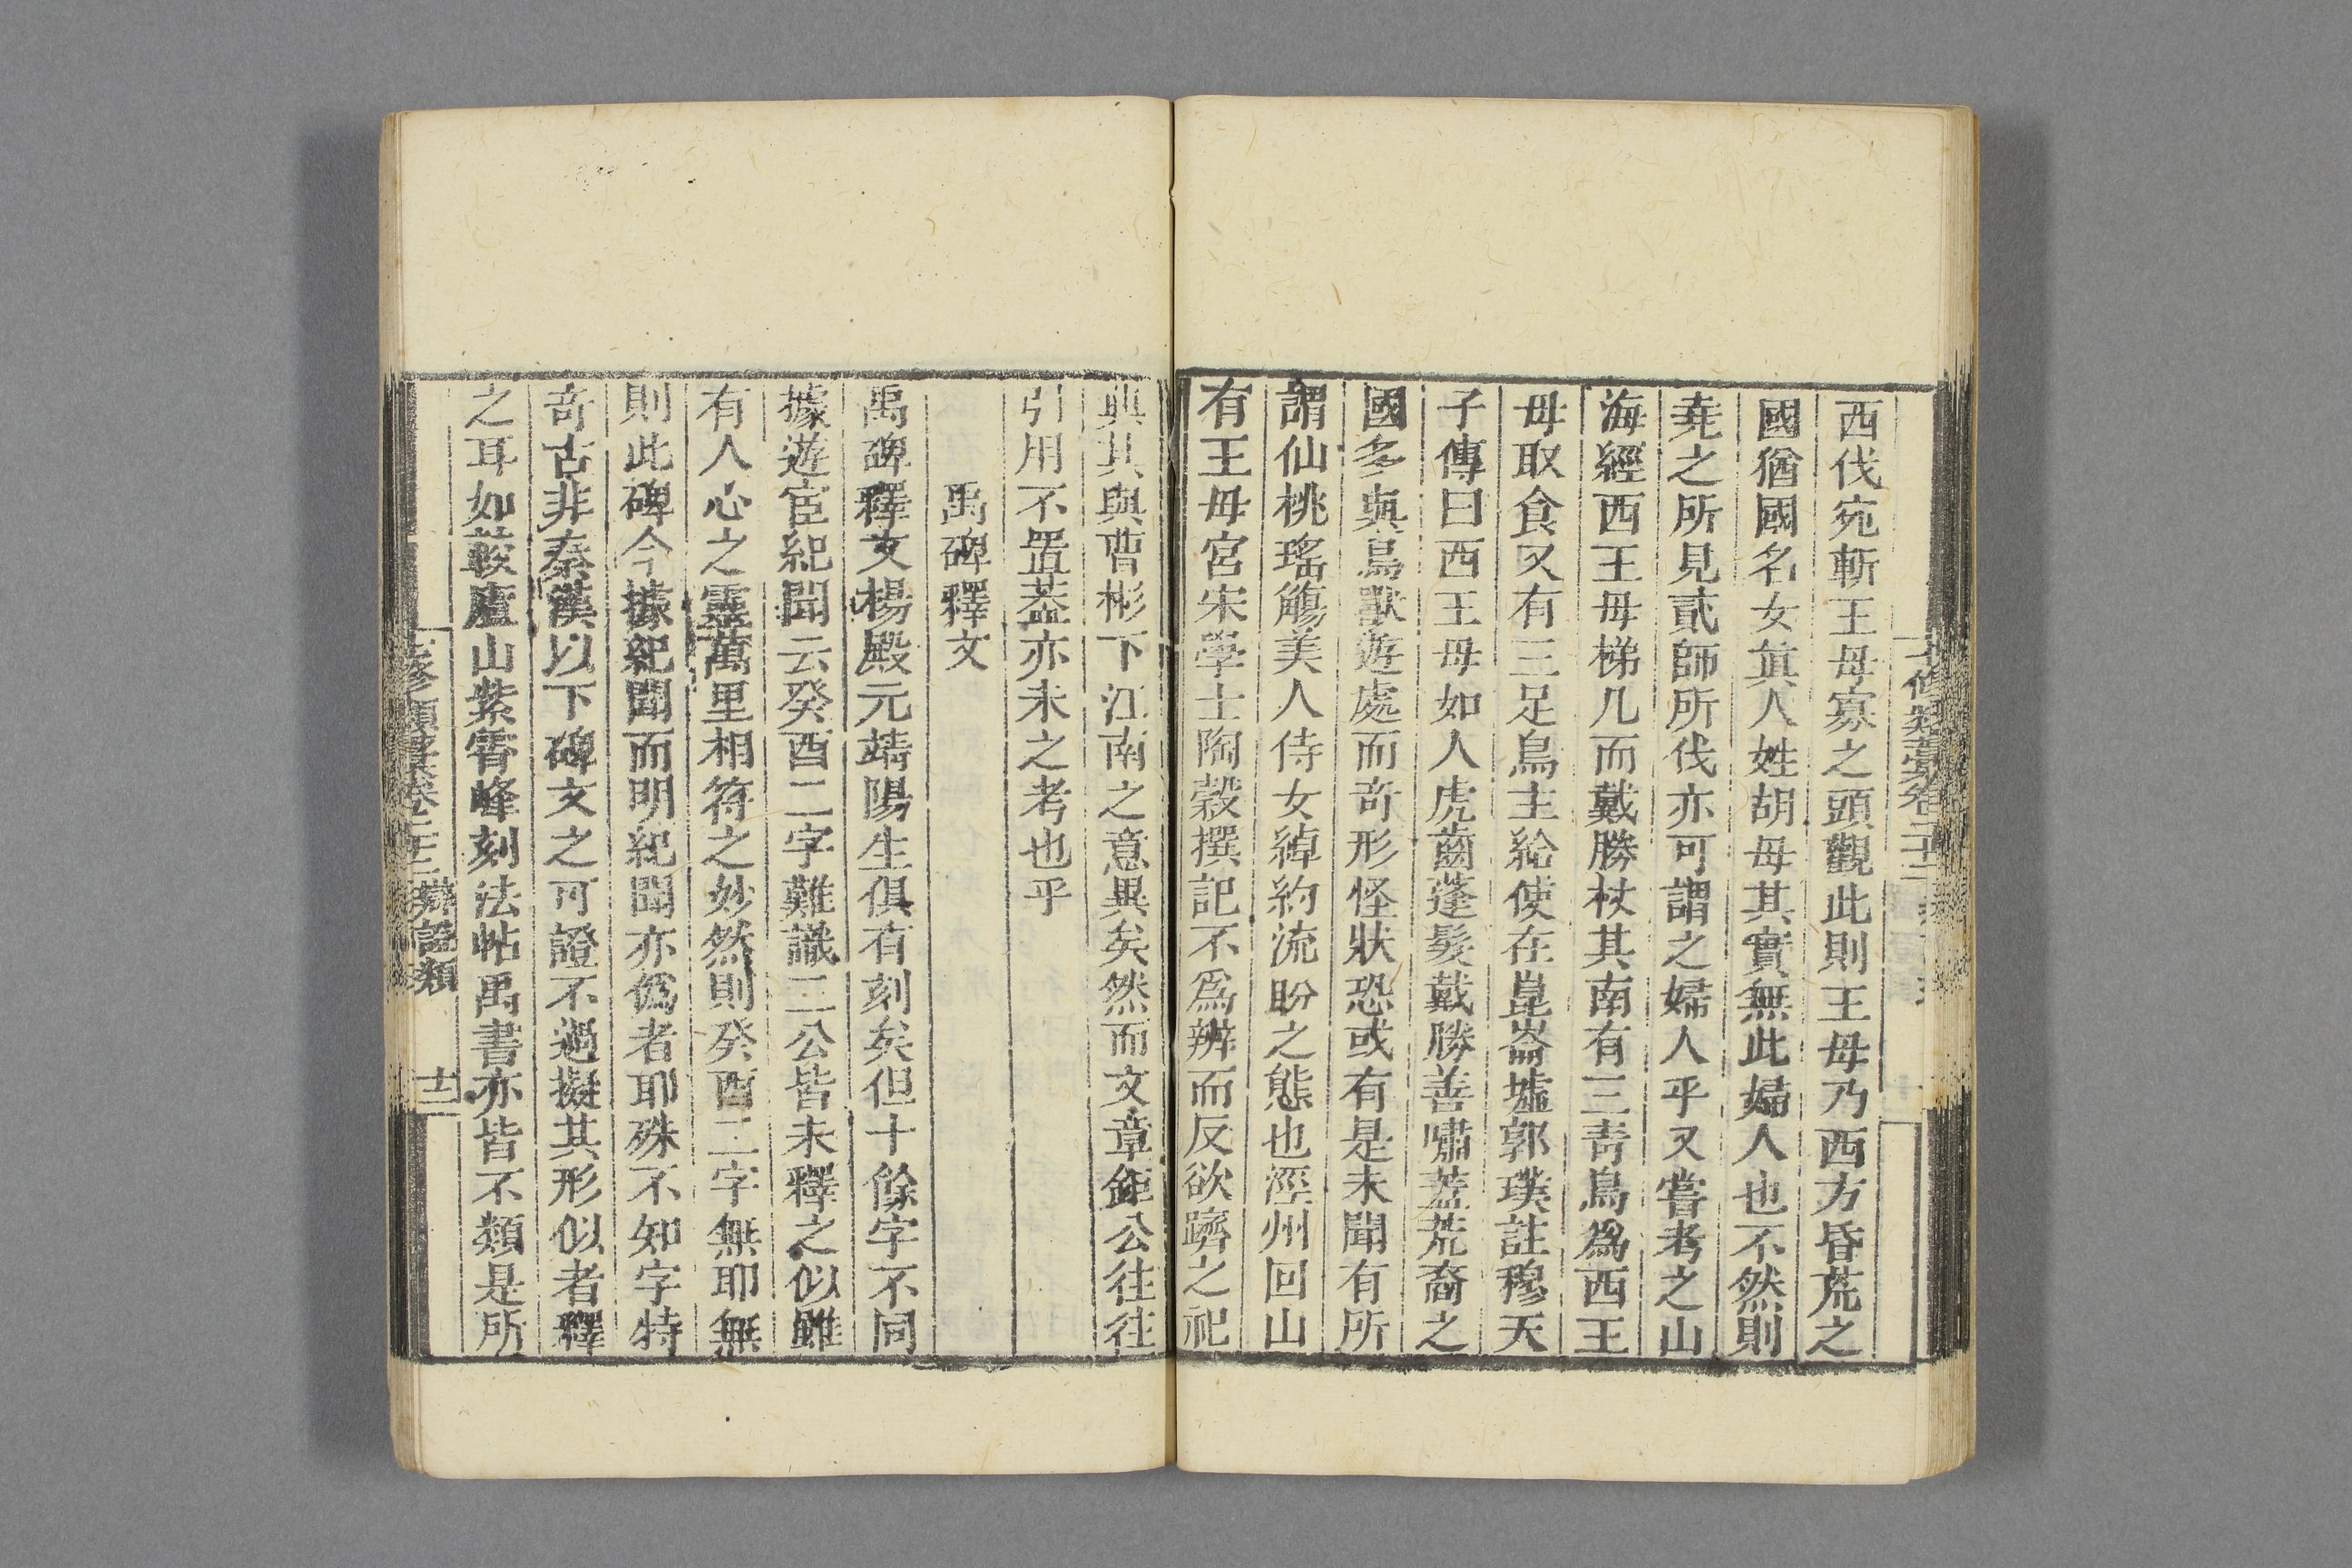 西伐宛斬王母寡之頭觀此則王母乃西方昏荒之
國猶國名女眞人姓胡母其實無此婦人也不然則
堯之所見貳師所伐亦可謂之婦人乎又嘗考之山
海經西王母梯几而戴勝杖其南有三青鳥爲西王
母取食又有三足鳥主給使在崑崙墟郭璞註穆天
子傳曰西王母如人虎齒蓬髮戴勝善嘯蓋荒裔之
國多與鳥獸遊處而奇形怪狀恐或有是未聞有所
謂仙桃瑤觴美人侍女綽約流盼之態也涇州回山
有王母宮宋學士陶穀撰記不爲辨而反欲躋之祀
典其與曹彬下江南之意異矣然而文章鉅公往往
引用不置蓋亦未之考也乎
禹碑釋文
禹碑釋文楊殿元靖陽生俱有刻矣但十餘字不同
據遊宦紀聞云癸酉二字難識二公皆未釋之似雖
有人心之靈萬里相符之妙然則癸酉二字無耶無
則此碑今據紀聞而明紀聞亦僞者耶殊不知字特
奇古非秦漢以下碑文之可證不過擬其形似者釋
之耳如蔡廬山紫霄峰刻法帖禹書亦皆不類是所
七修類藁卷二十三 辯證類 十二